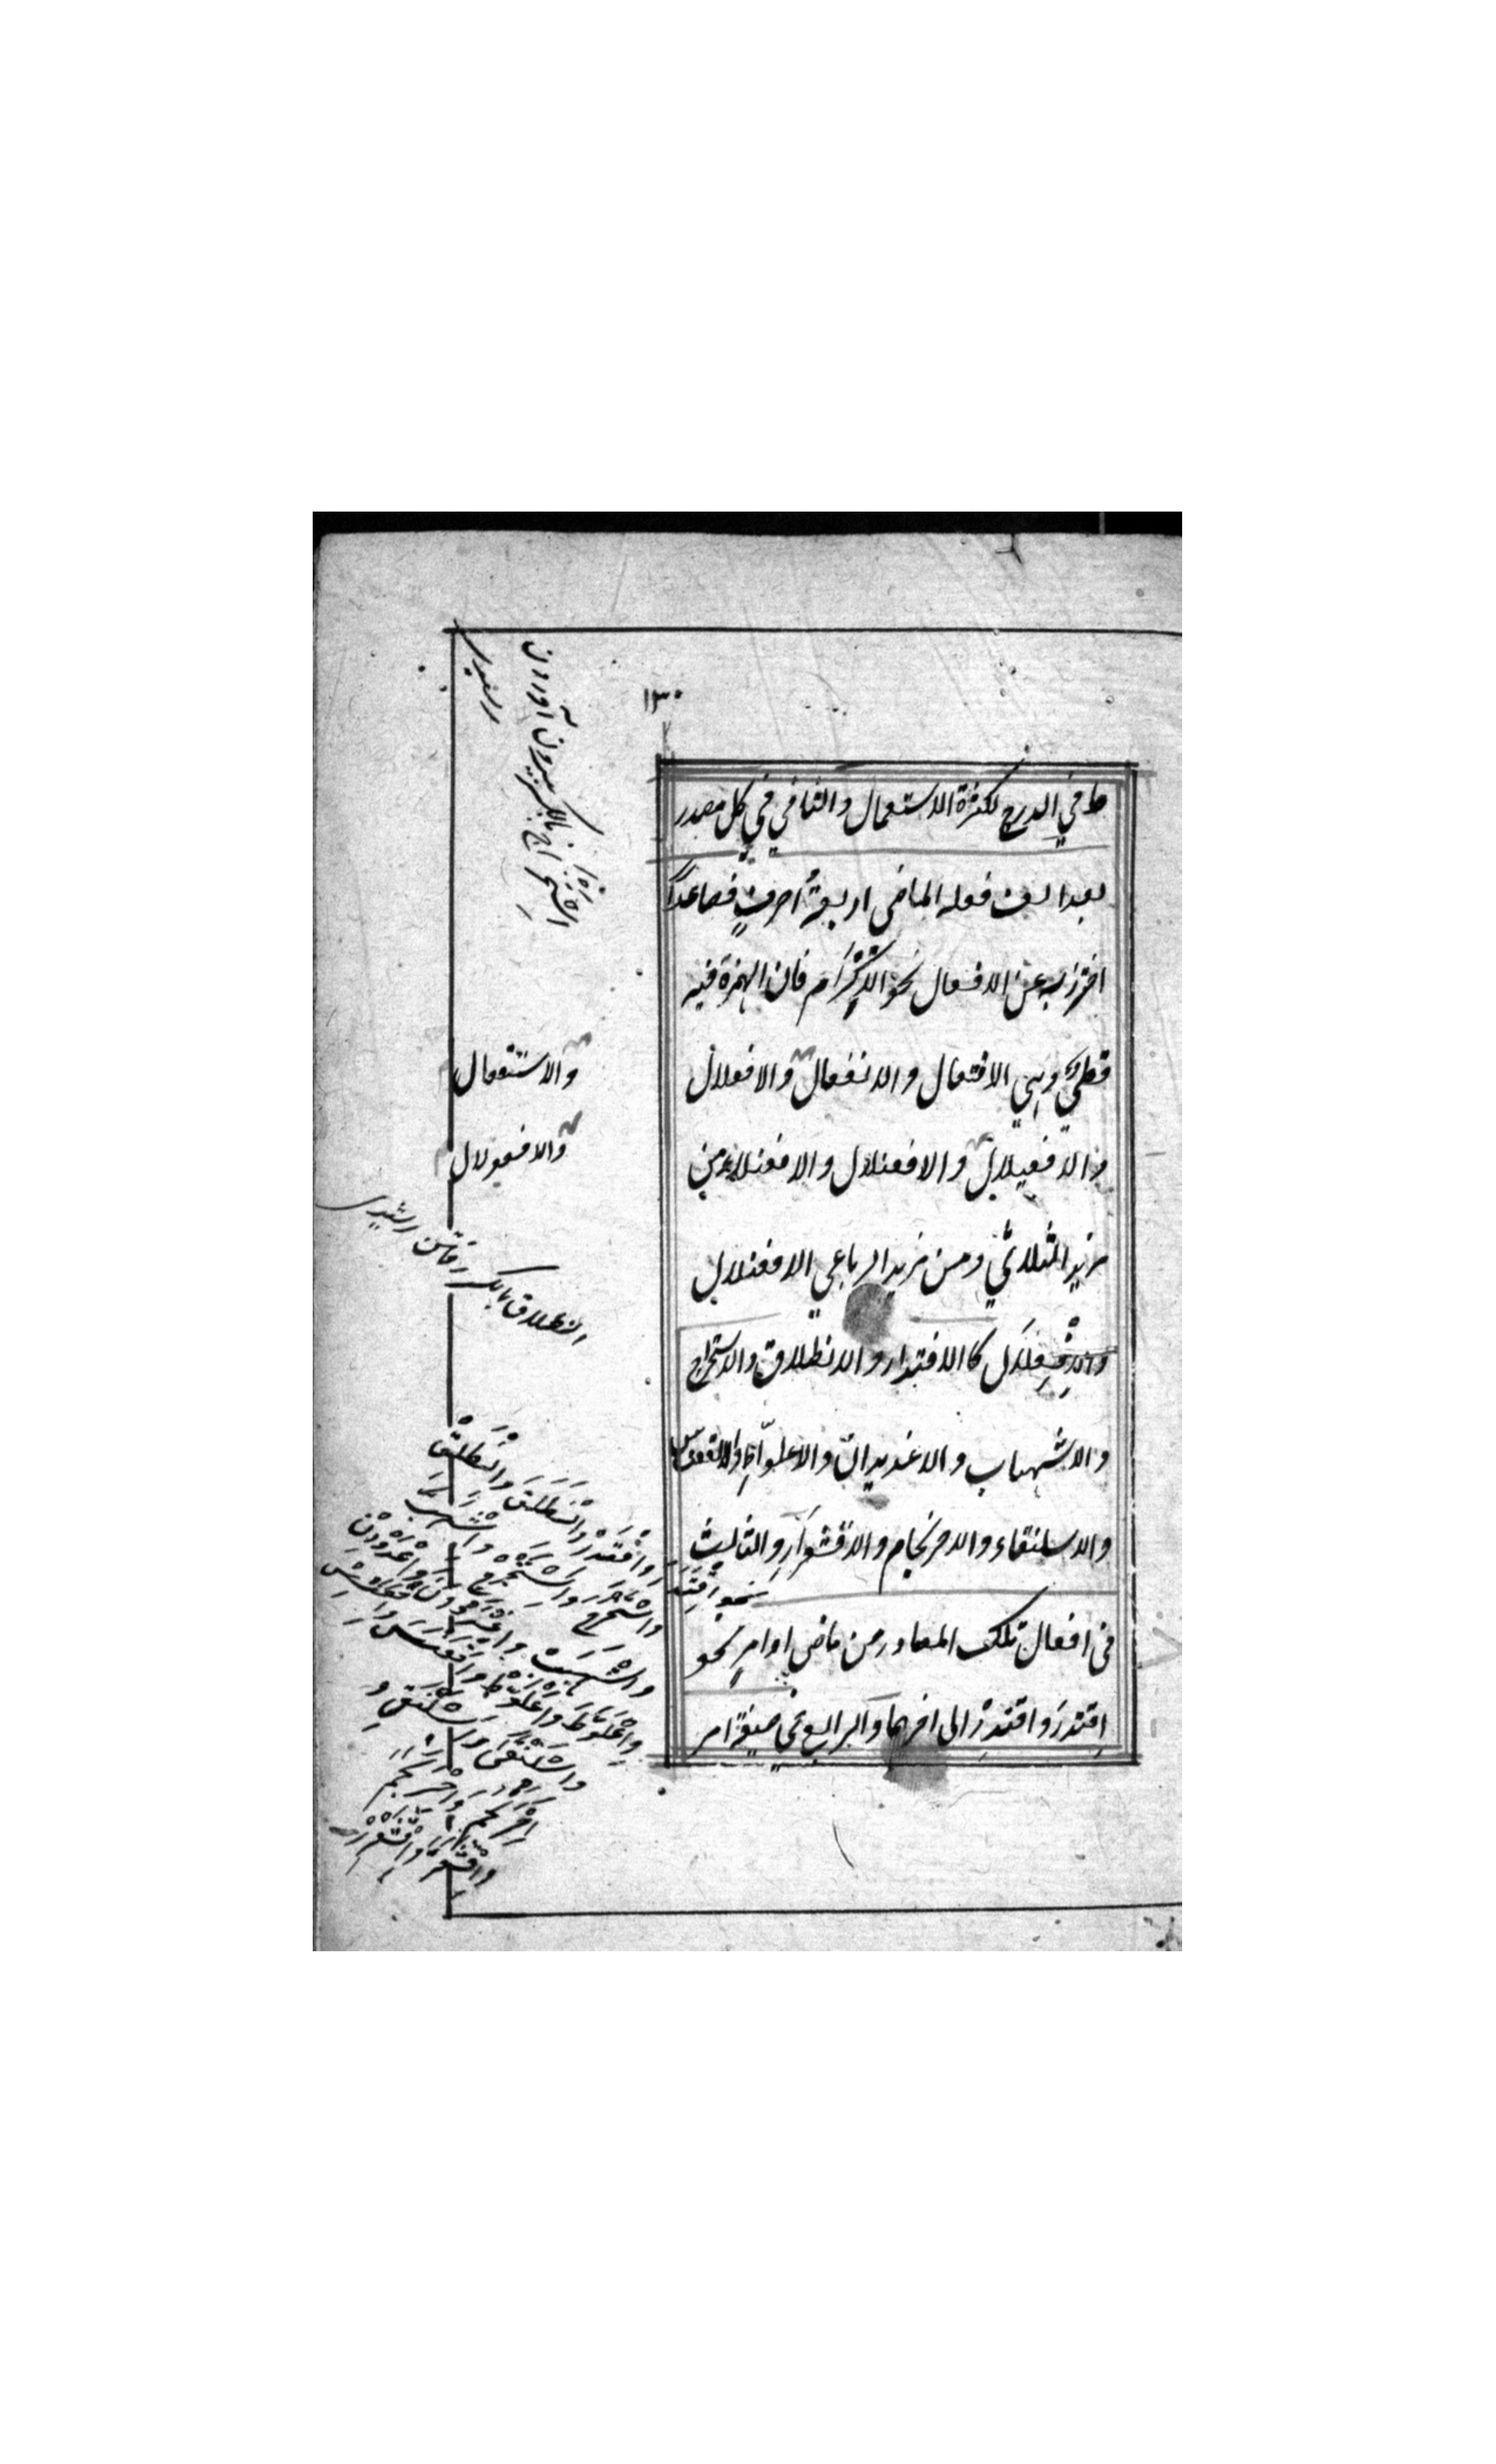 ١٣٠
ط في الدرج لكثرة الاستعمال والثاني في كل مصدر
بعد الف فعله الماضي اربعةُ احرفٍ فصاعداً
احترز به عن الافعال نحو الاِكْرَام فان الهمزة فيه
قطعيٌ وهي الافتعال والانفعال والافعلال
والافعيلال والافعنلال والافعنلاء من
مزيد الثلاثي ومن مزيد الرباعي الافعنلال
والاِفْعِلَّال كا الاقتدار والانطلاق والاستخراج
والاشهباب والاغديدان والاعلوّاط والاقعنساس
والاسلنقاء والاحرنجام والاقشعرَارِ والثالث
في افعال تلك المصادر من ماضٍ او امرٍ نحو
اِقتدرَ واقتدِرْ الى اخرهما والرابع في صيغة امر
والاستفعال
والافعولال
انطلاق بالكسر رفتن رشيدى
الاستخراج بالكسر بيرون آوردن
رشيدى
نحو اِقْتَدَرَ
وَاقْتَدِرْ وَانْطَلَقَ وَانْطَلِقْ
وَاسْتَخْرَجَ وَاسْتَخْرِجْ